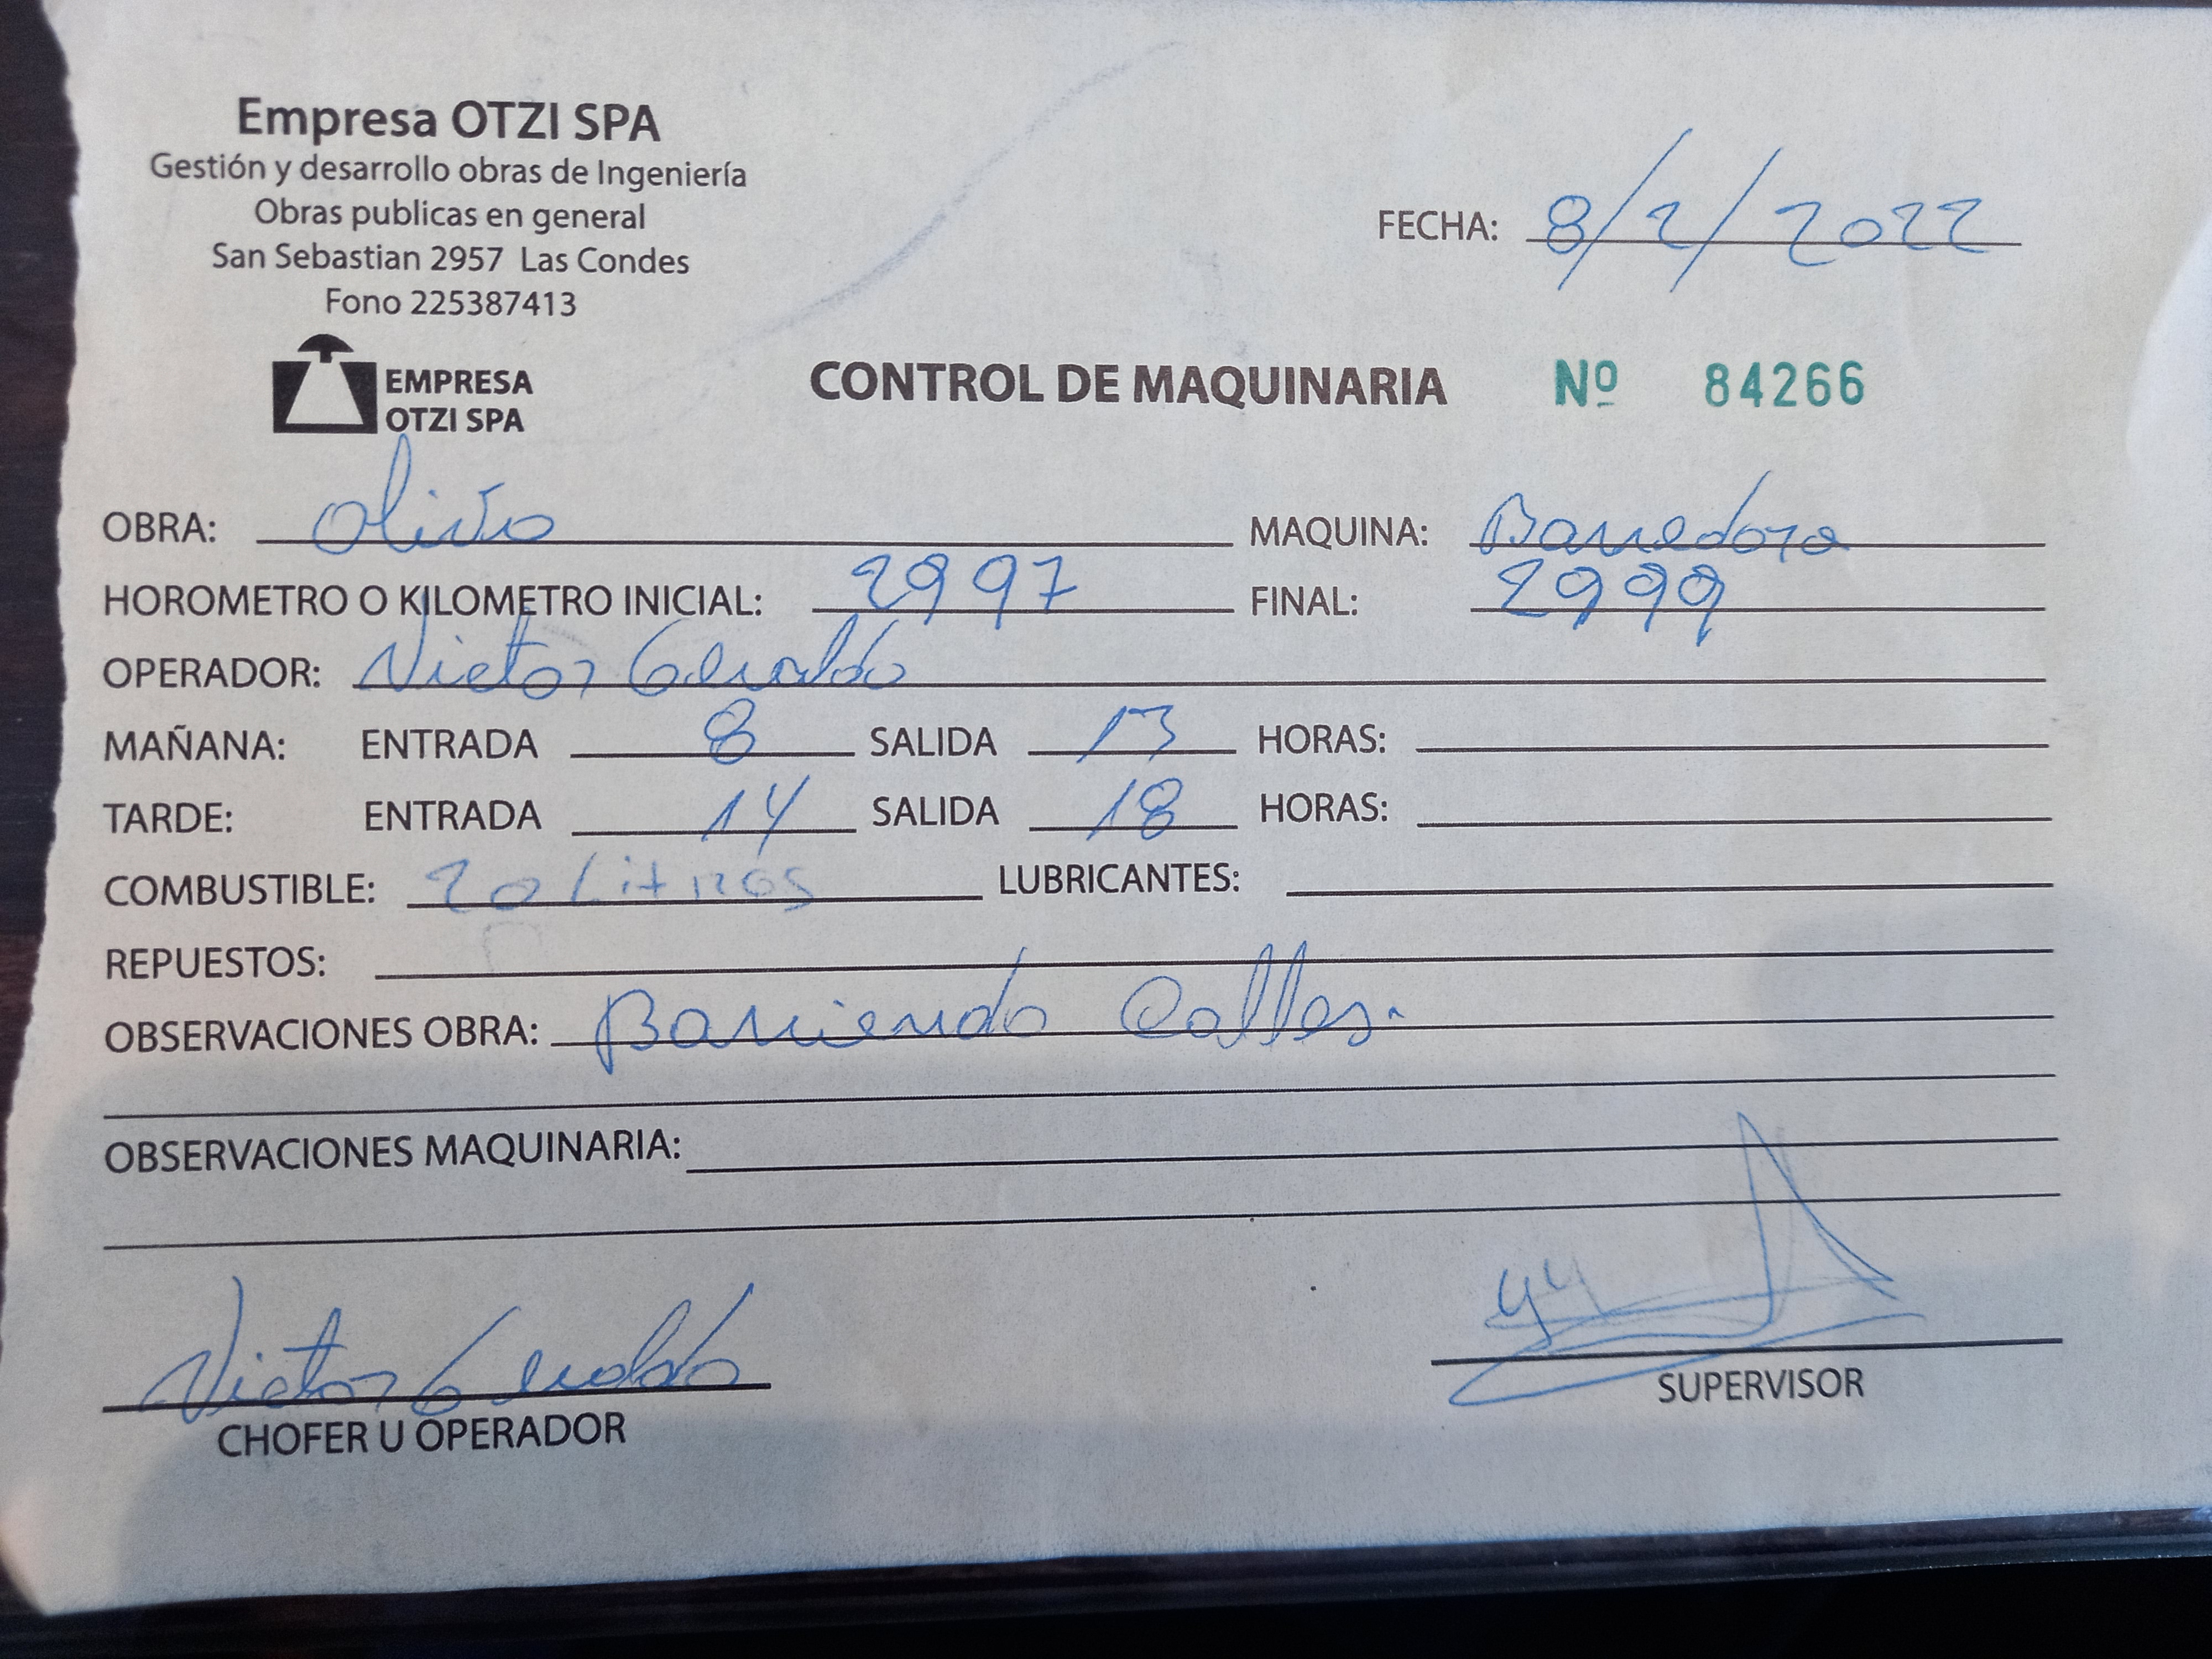 Empresa OTZI SPA
Gestión y desarrollo obras de Ingeniería
Obras publicas en general
San Sebastian 2957 Las Condes
Fono 225387413
FECHA: 8/2/2022
EMPRESA
OTZI SPA
CONTROL DE MAQUINARIA Nº 84266
OBRA: Olivo MAQUINA: Barredora
HOROMETRO O KILOMETRO INICIAL: 2997 FINAL: 2999
OPERADOR: Victor Geraldo
MAÑANA: ENTRADA 8 SALIDA 13 HORAS:
TARDE: ENTRADA 14 SALIDA 18 HORAS:
COMBUSTIBLE: 20 Litros LUBRICANTES:
REPUESTOS:
OBSERVACIONES OBRA: Barriendo Calles.
OBSERVACIONES MAQUINARIA:
Victor Geraldo
CHOFER U OPERADOR
SUPERVISOR